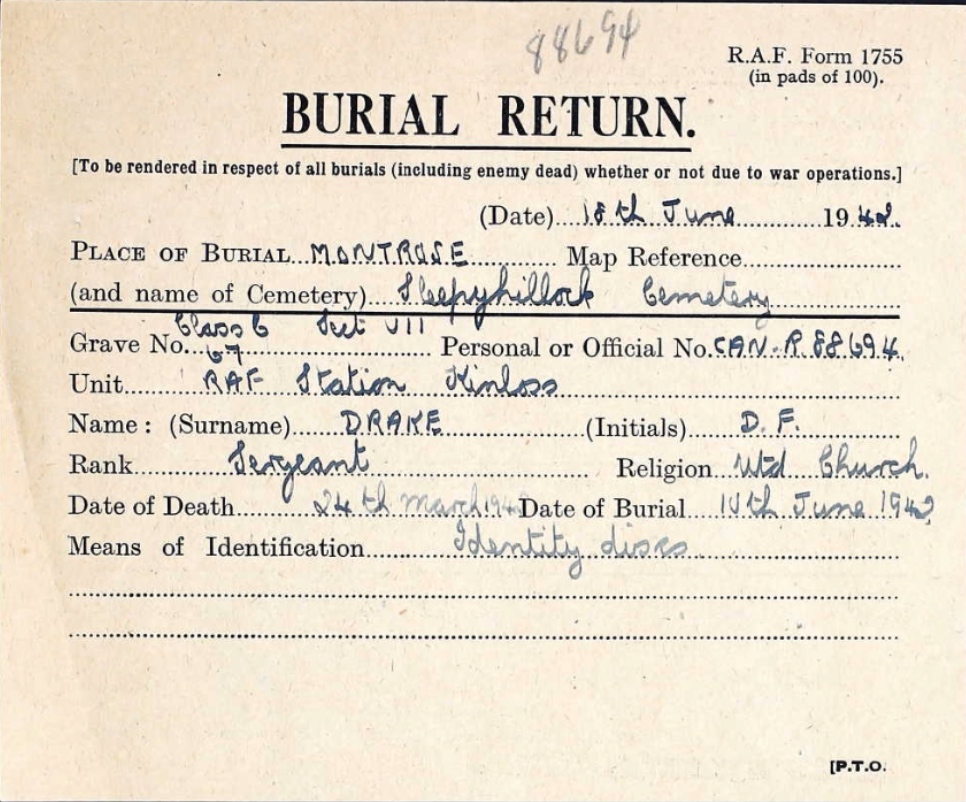 88694
R.A.F. Form 1755
(in pads of 100).
BURIAL RETURN.
[To be rendered in respect of all burials (including enemy dead) whether or not due to war operations.]
(Date) 18th June 1942.
PLACE OF BURIAL MONTROSE Map Reference
(and name of Cemetery) Sleepyhillock Cemetery
Class C Sect VII
Grave No. 67 Personal or Official No. CAN. R. 88694.
Unit RAF Station Kinloss
Name: (Surname) DRAKE (Initials) D. F.
Rank Sergeant Religion Utd Church.
Date of Death 24th March 1942 Date of Burial June 1942
Means of Identification Identity discs
[P.T.O.